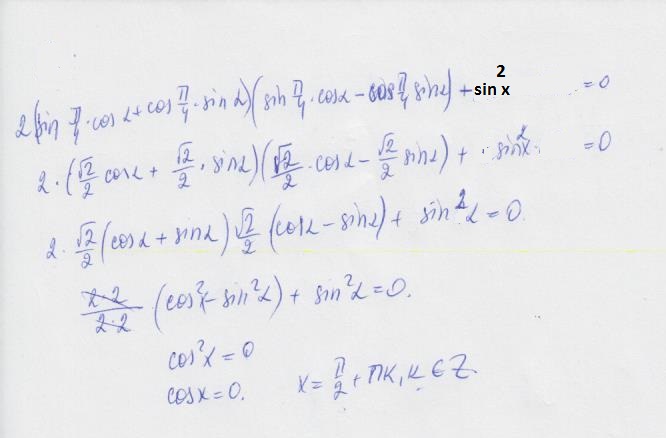 2(sin π/4 · cos α + cos π/4 · sin α)(sin π/4 · cos α − cos π/4 sin α) + sin² x = 0
2 · (√2/2 cos α + √2/2 · sin α)(√2/2 · cos α − √2/2 sin α) + · sin² x · = 0
2 · √2/2 (cos α + sin α) √2/2 (cos α − sin α) + sin² α = 0.
2·2/2·2 · (cos² x − sin² α) + sin² α = 0.
cos² x = 0
cos x = 0. x = π/2 + πk, k ∈ Z